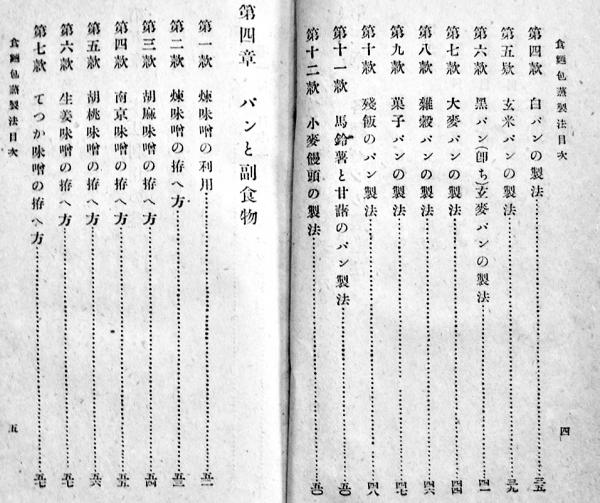 食麵包蒸製法目次
第四款 白パンの製法 三五
第五款 玄米パンの製法 三九
第六款 黑パン(卽ち)玄麥パンの製法 四一
第七款 大麥パンの製法 四四
第八款 雜穀パンの製法 四六
第九款 菓子パンの製法 四七
第十款 殘飯のパン製法 四八
第十一款 馬鈴薯と甘藷のパン製法 五〇
第十二款 小麥饅頭の製法 五〇
四
第四章 パンと副食物
第一款 煉味噌の利用 五一
第二款 煉味噌の拵へ方 五三
第三款 胡麻味噌の拵へ方 五四
第四款 南京味噌の拵へ方 五五
第五款 胡桃味噌の拵へ方 五六
第六款 生姜味噌の拵へ方 五七
第七款 てつか味噌の拵へ方 五七
食麵包蒸製法目次
五